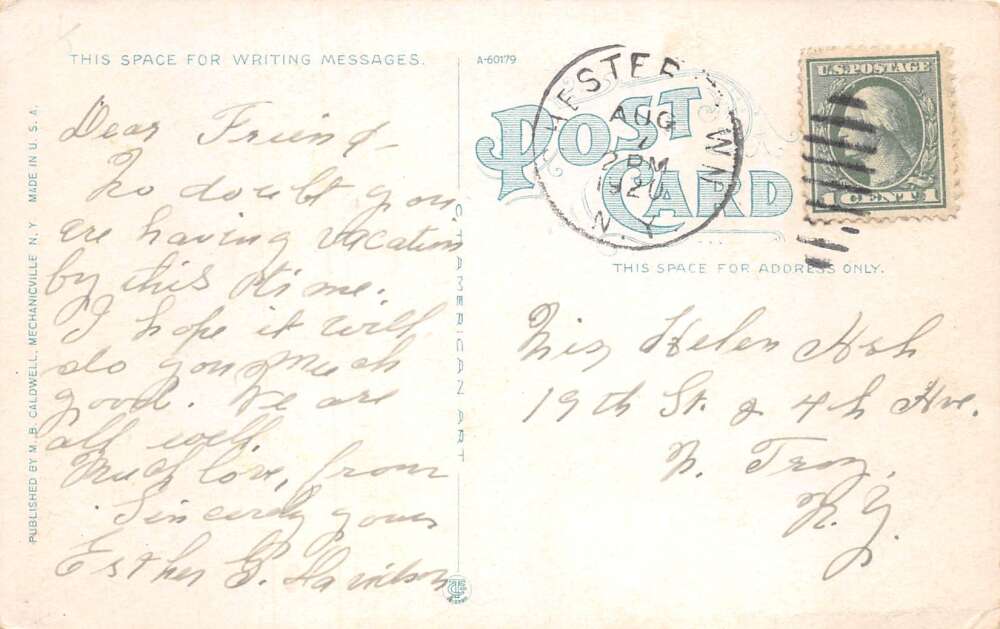 THIS SPACE FOR WRITING MESSAGES.
Dear Friend -
No doubt you
are having vacation
by this time.
I hope it will
do you much
good. We are
all well.
Much love, from
Sincerely yours
Esther G. Davidson
PUBLISHED BY M. B. CALDWELL, MECHANICVILLE N. Y. MADE IN U. S. A.
C. T. AMERICAN ART
A-60179
POST CARD
AUG
2 PM
1920
N.Y.
U.S. POSTAGE
1 CENT 1
THIS SPACE FOR ADDRESS ONLY.
Miss Helen
19th St. & 4th Ave.
N. Troy,
N.Y.